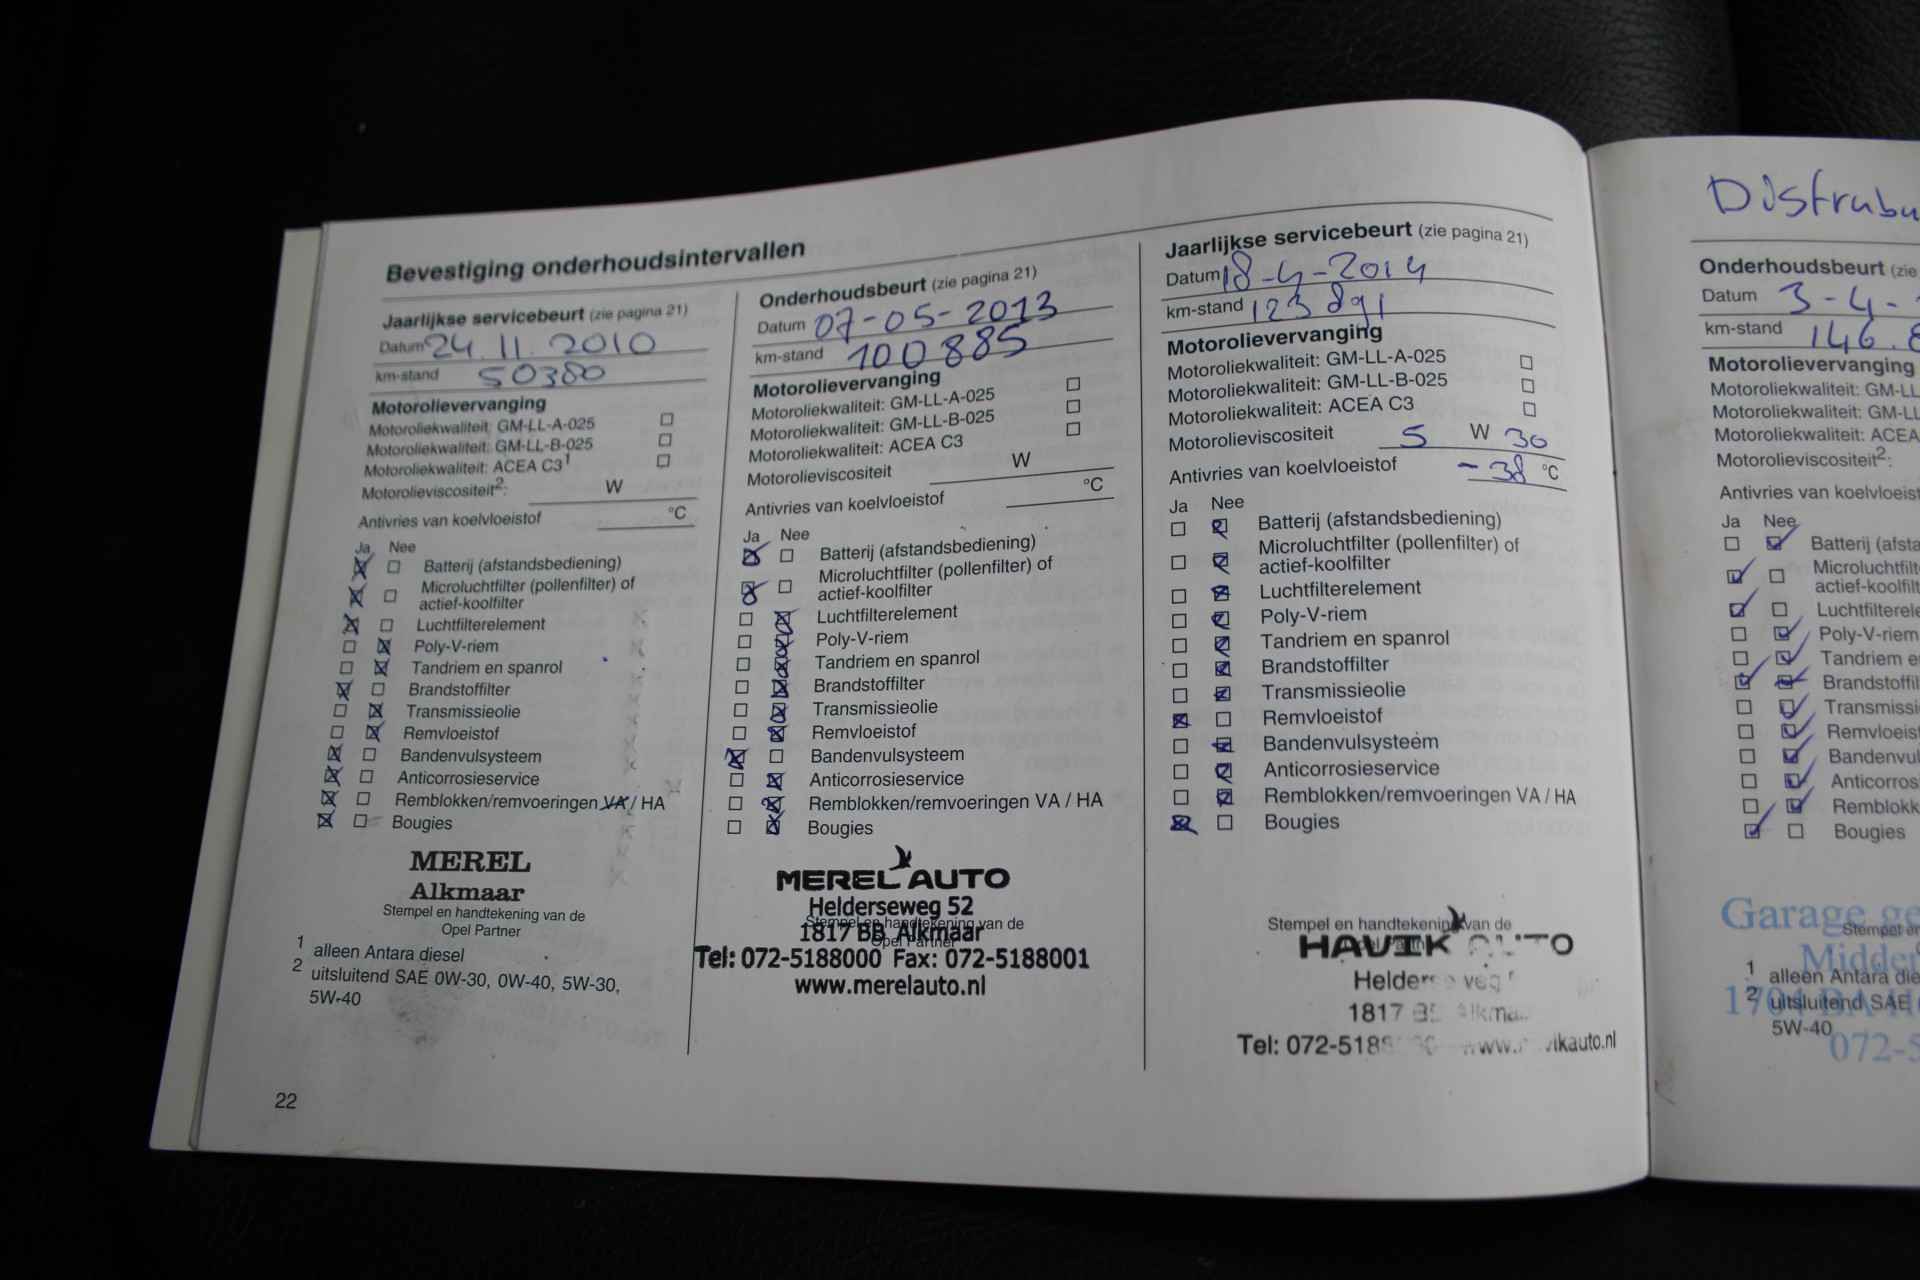 Bevestiging onderhoudsintervallen
Jaarlijkse servicebeurt (zie pagina 21)
Datum 24.11.2010
km-stand 50380
Motorolievervanging
Motoroliekwaliteit: GM-LL-A-025
Motoroliekwaliteit: GM-LL-B-025
Motoroliekwaliteit: ACEA C3¹
Motorolieviscositeit²: W
Antivries van koelvloeistof °C
Ja Nee
Batterij (afstandsbediening)
Microluchtfilter (pollenfilter) of
actief-koolfilter
Luchtfilterelement
Poly-V-riem
Tandriem en spanrol
Brandstoffilter
Transmissieolie
Remvloeistof
Bandenvulsysteem
Anticorrosieservice
Remblokken/remvoeringen VA / HA
Bougies
MEREL
Alkmaar
Stempel en handtekening van de
Opel Partner
1 alleen Antara diesel
2 uitsluitend SAE 0W-30, 0W-40, 5W-30,
5W-40
22
Onderhoudsbeurt (zie pagina 21)
Datum 07-05-2013
km-stand 100885
Motorolievervanging
Motoroliekwaliteit: GM-LL-A-025
Motoroliekwaliteit: GM-LL-B-025
Motoroliekwaliteit: ACEA C3
Motorolieviscositeit W
Antivries van koelvloeistof °C
Ja Nee
Batterij (afstandsbediening)
Microluchtfilter (pollenfilter) of
actief-koolfilter
Luchtfilterelement
Poly-V-riem
Tandriem en spanrol
Brandstoffilter
Transmissieolie
Remvloeistof
Bandenvulsysteem
Anticorrosieservice
Remblokken/remvoeringen VA / HA
Bougies
MEREL AUTO
Helderseweg 52
Stempel en handtekening van de
1817 BB Alkmaar
Opel Partner
Tel: 072-5188000 Fax: 072-5188001
www.merelauto.nl
Jaarlijkse servicebeurt (zie pagina 21)
Datum 18-4-2014
km-stand 123891
Motorolievervanging
Motoroliekwaliteit: GM-LL-A-025
Motoroliekwaliteit: GM-LL-B-025
Motoroliekwaliteit: ACEA C3
Motorolieviscositeit 5 W 30
Antivries van koelvloeistof -38 °C
Ja Nee
Batterij (afstandsbediening)
Microluchtfilter (pollenfilter) of
actief-koolfilter
Luchtfilterelement
Poly-V-riem
Tandriem en spanrol
Brandstoffilter
Transmissieolie
Remvloeistof
Bandenvulsysteem
Anticorrosieservice
Remblokken/remvoeringen VA / HA
Bougies
Stempel en handtekening van de
HAVIK AUTO
1817
Tel:
Onderhoudsbeurt (zie
Datum 3-4-
km-stand 146.8
Motorolievervanging
Motoroliekwaliteit: GM-LL
Motoroliekwaliteit: GM-LL
Motoroliekwaliteit: ACEA
Motorolieviscositeit²:
Antivries van koelvloeist
Ja Nee
Batterij (afsta
Microluchtfilte
actief-koolfilt
Luchtfilterele
Poly-V-riem
Tandriem e
Brandstoffil
Transmissi
Remvloeist
Bandenvul
Anticorros
Remblokk
Bougies
Garage ge
Stempel en
Midden
1 alleen Antara die
2 uitsluitend SAE
5W-40
072-5